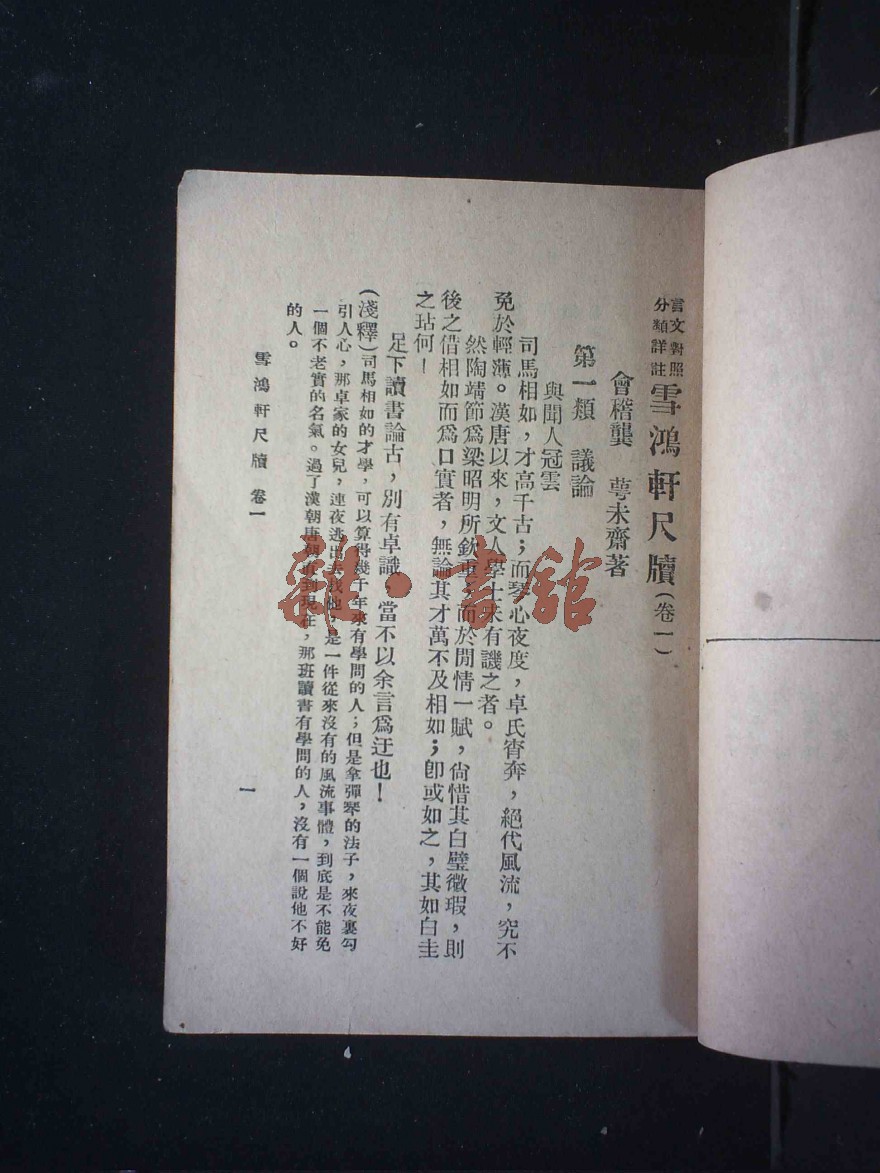 言文對照
分類詳註
雪鴻軒尺牘(卷一)
會稽龔 萼未齋著
第一類 議論
與聞人冠雲
司馬相如,才高千古;而琴心夜度,卓氏宵奔,絕代風流,究不
免於輕薄。漢唐以來,文人學士未有譏之者。
然陶靖節爲梁昭明所欽重,而於閒情一賦,尙惜其白璧微瑕,則
後之借相如而爲口實者,無論其才萬不及相如;卽或如之,其如白圭
之玷何!
足下讀書論古,別有卓識,當不以余言爲迂也!
(淺釋)司馬相如的才學,可以算得幾千年來有學問的人;但是拿彈琴的法子,來夜裏勾
引人心,那卓家的女兒,連夜逃出去找他,是一件從來沒有的風流事體,到底是不能免
一個不老實的名氣。過了漢朝唐朝直到現在,那班讀書有學問的人,沒有一個說他不好
的人。
雪鴻軒尺牘 卷一
一
雜·書館